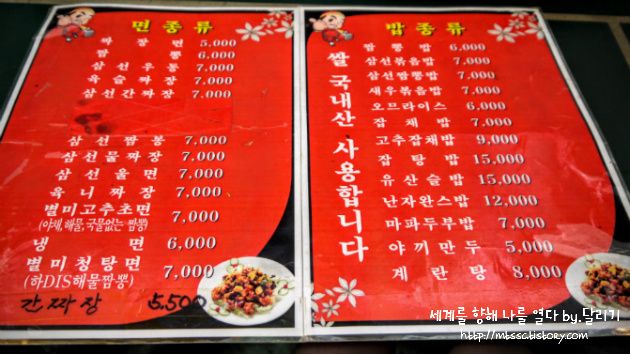 면 종 류
짜 장 면 5,000
짬 뽕 6,000
삼 선 우 동 7,000
육 슬 짜 장 7,000
삼 선 간 짜 장 7,000
삼 선 짬 봉 7,000
삼 선 물 짜 장 7,000
삼 선 울 면 7,000
육 니 짜 장 7,000
별미고추초면 7,000
(야채,해물,국물없는 짬뽕)
냉 면 6,000
별미청탕면 7,000
(하DIS해물짬뽕)
간 짜 장 5,500
밥 종 류
쌀 국내산 사용합니다
짬 뽕 밥 6,000
삼선볶음밥 7,000
삼선짬뽕밥 7,000
새우볶음밥 7,000
오므라이스 6,000
잡 채 밥 7,000
고추잡채밥 9,000
잡 탕 밥 15,000
유 산 슬 밥 15,000
난자완스밥 12,000
마파두부밥 7,000
야 끼 만 두 5,000
계 란 탕 8,000
세계를 향해 나를 열다 by.달리기
http://mtssc.tistory.com